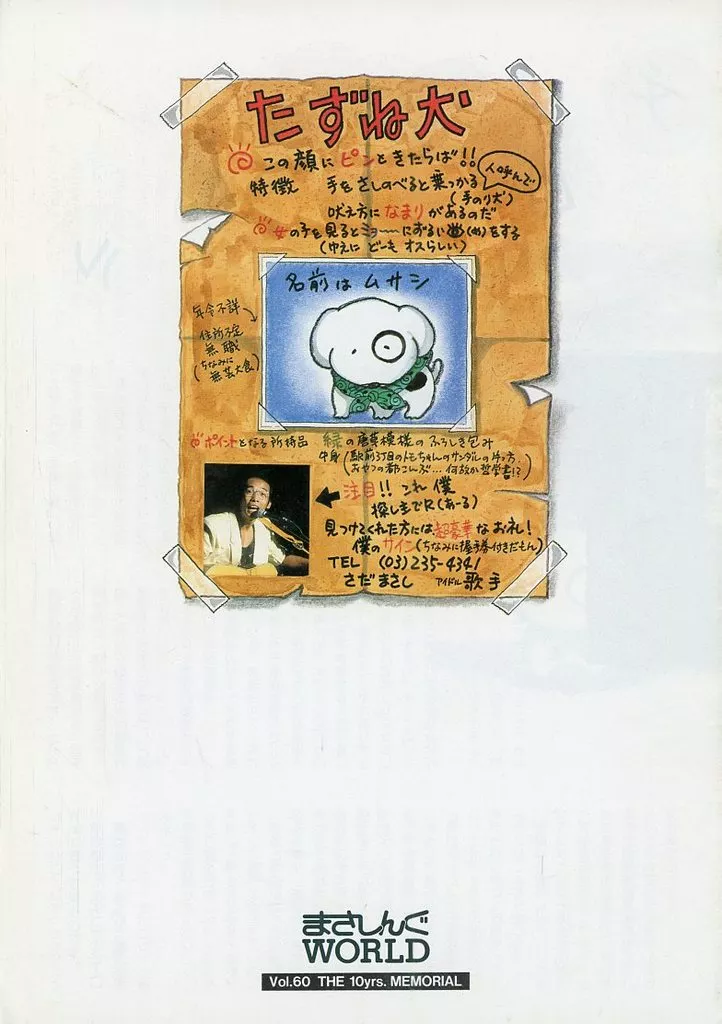 たずね犬
この顔にピンときたらば!!
特徴 手をさしのべると乗っかる
人呼んで
(手のり犬)
吠え方になまりがあるのだ
女の子を見るとミョーにずるい目(め)をする
(ゆえにどーもオスらしい)
名前はムサシ
年令不詳
住所不定
無職
(ちなみに
無芸大食)
ポイントとなる所持品 緑の唐草模様のふろしき包み
中身(駅前3丁目のトモちゃんのサンダルの片っ方
おやつの都こんぶ…何故か哲学書!?)
注目!! これ僕
探しまでR(あーる)
見つけてくれた方には超豪華なお礼!
僕のサイン(ちなみに握手券付きだもん)
TEL (03)235-4341
さだまさし アイドル歌手
まさしんぐ
WORLD
Vol.60 THE 10yrs. MEMORIAL